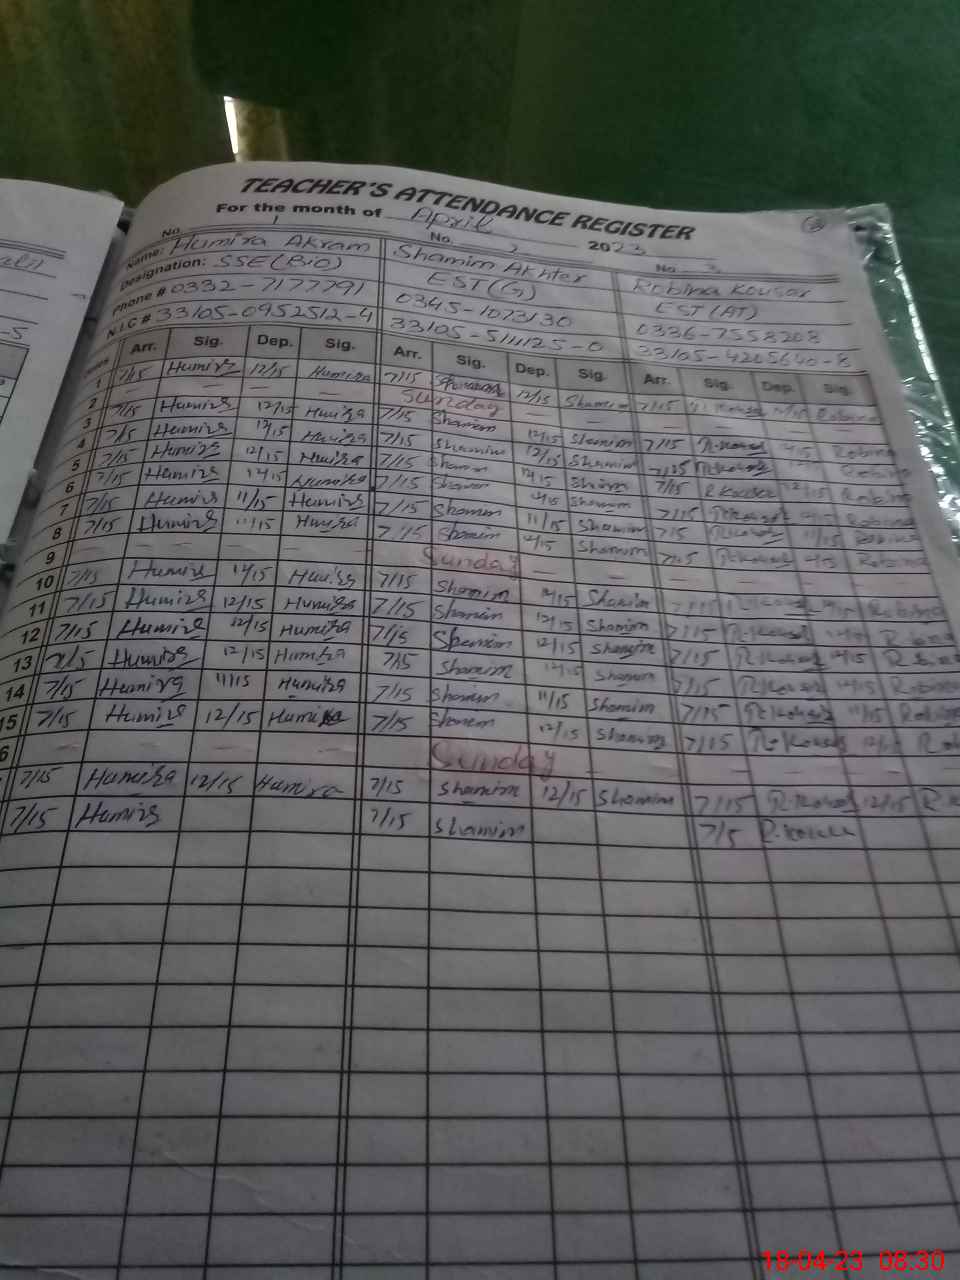 TEACHER'S ATTENDANCE REGISTER
For the month of April 2023
No. 1 No. 2 No. 3
Name: Humira Akram Shamim Akhter Robina Kousar
Designation: SSE(Bio) EST(G) EST(AT)
Phone # 0332-7177791 0345-1073130 0336-7558208
N.I.C # 33105-0952512-4 33105-5111125-0 33105-4205640-8
Arr. Sig. Dep. Sig. Arr. Sig. Dep. Sig. Arr. Sig. Dep. Sig.
1 7/15 Humira 12/15 Humira 7/15 12/15 Shamim 7/15 R.Kousar Robina
2 — — — — Sunday — — — —
3 7/15 Humira 12/15 Humira 7/15 Shamim 12/15 Shamim 7/15 R.Kousar Robina
4 7/15 Humira 12/15 Humira 7/15 Shamim 12/15 Shamim 7/15 R.Kousar Robina
5 7/15 Humira 12/15 Humira 7/15 Shamim 12/15 Shamim 7/15 R.Kousar 12/15 Robina
6 7/15 Humira 12/15 Humira 7/15 Shamim 12/15 Shamim 7/15 R.Kousar 12/15 Robina
7 7/15 Humira 11/15 Humira 7/15 Shamim 11/15 Shamim 7/15 R.Kousar 11/15 Robina
8 7/15 Humira 11/15 Humira 7/15 Shamim 12/15 Shamim 7/15 R.Kousar Robina
9 — — — — Sunday — — — — — —
10 7/15 Humira 12/15 Humira 7/15 Shamim 12/15 Shamim 7/15 R.Kousar Robina
11 7/15 Humira 12/15 Humira 7/15 Shamim 12/15 Shamim 7/15 R.Kousar Robina
12 7/15 Humira 12/15 Humira 7/15 Shamim 12/15 Shamim 7/15 R.Kousar 12/15 Robina
13 7/15 Humira 12/15 Humira 7/15 Shamim 12/15 Shamim 7/15 R.Kousar 12/15 Robina
14 7/15 Humira 11/15 Humira 7/15 Shamim 11/15 Shamim 7/15 R.Kousar 11/15 Robina
15 7/15 Humira 12/15 Humira 7/15 Shamim 12/15 Shamim 7/15 R.Kousar Rob
6 — — — — Sunday — — — — — —
7/15 Humira 12/15 Humira 7/15 Shamim 12/15 Shamim 7/15 R.Kousar 12/15 R.
7/15 Humira 7/15 Shamim 7/5 R.Kousar
18-04-23 08:30